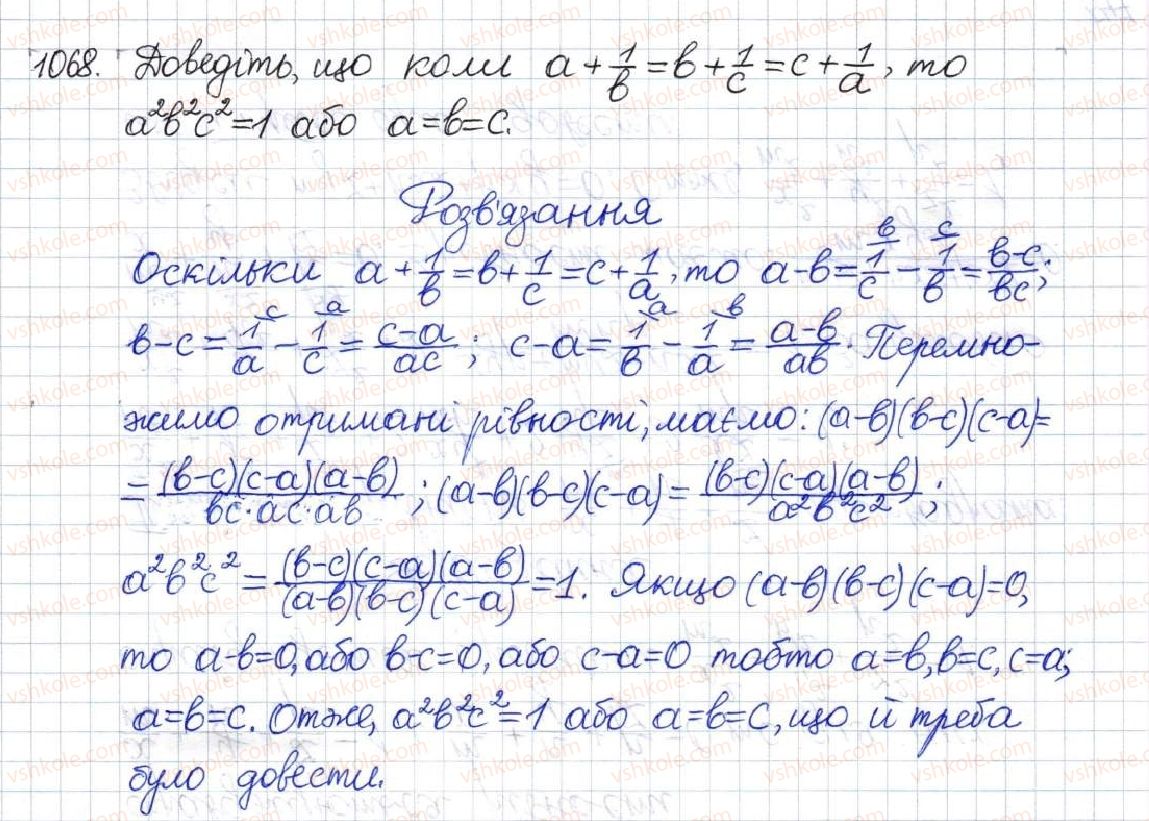 1068. Доведіть, що коли a + 1/b = b + 1/c = c + 1/a, то
a²b²c² = 1 або a = b = c.
Розв'язання
Оскільки a + 1/b = b + 1/c = c + 1/a, то a - b = 1/c - 1/b = (b-c)/bc;
b - c = 1/a - 1/c = (c-a)/ac; c - a = 1/b - 1/a = (a-b)/ab. Перемно-
жимо отримані рівності, маємо: (a-b)(b-c)(c-a) =
= (b-c)(c-a)(a-b)/(bc·ac·ab); (a-b)(b-c)(c-a) = (b-c)(c-a)(a-b)/(a²b²c²);
a²b²c² = (b-c)(c-a)(a-b)/((a-b)(b-c)(c-a)) = 1. Якщо (a-b)(b-c)(c-a) = 0,
то a-b=0, або b-c=0, або c-a=0 тобто a=b, b=c, c=a;
a=b=c. Отже, a²b²c²=1 або a=b=c, що й треба
було довести.